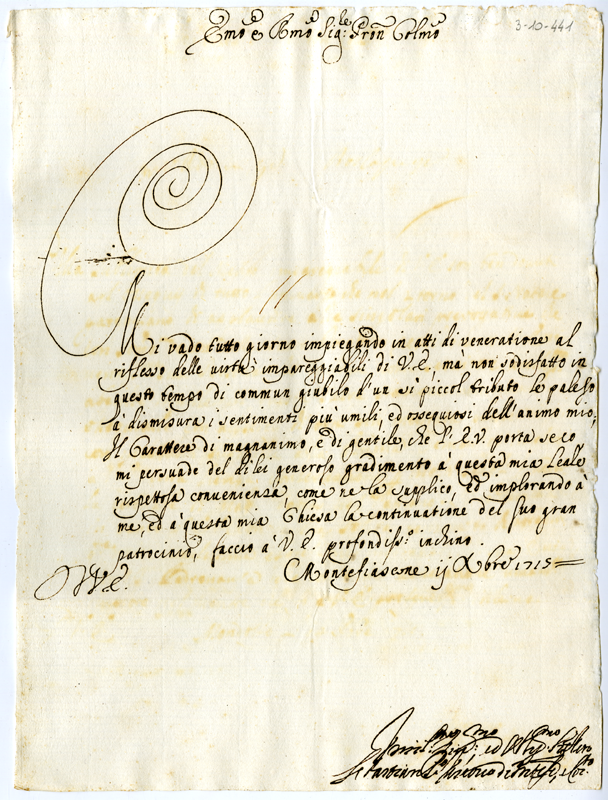 3-10-441
Emo e Rmo Sig:re Pron Colmo
Mi vado tutto giorno impiegando in atti di veneratione al
riflesso delle virtù impareggiabili di V.E. mà non sodisfatto in
questo tempo di commun giubilo d'un sì piccol tributo le paleso
à dismisura i sentimenti più umili, ed ossequiosi dell'animo mio,
Il Carattere di magnanimo, e di gentile, che l'E.V. porta seco
mi persuade del di lei generoso gradimento à questa mia leale
rispettosa convenienza, come ne la supplico, ed implorando à
me, ed à questa mia Chiesa la continuatione del suo gran
patrocinio, faccio à V.E. profondiss:o inchino.
Montefiascone ij Xbre 1715
V.E.